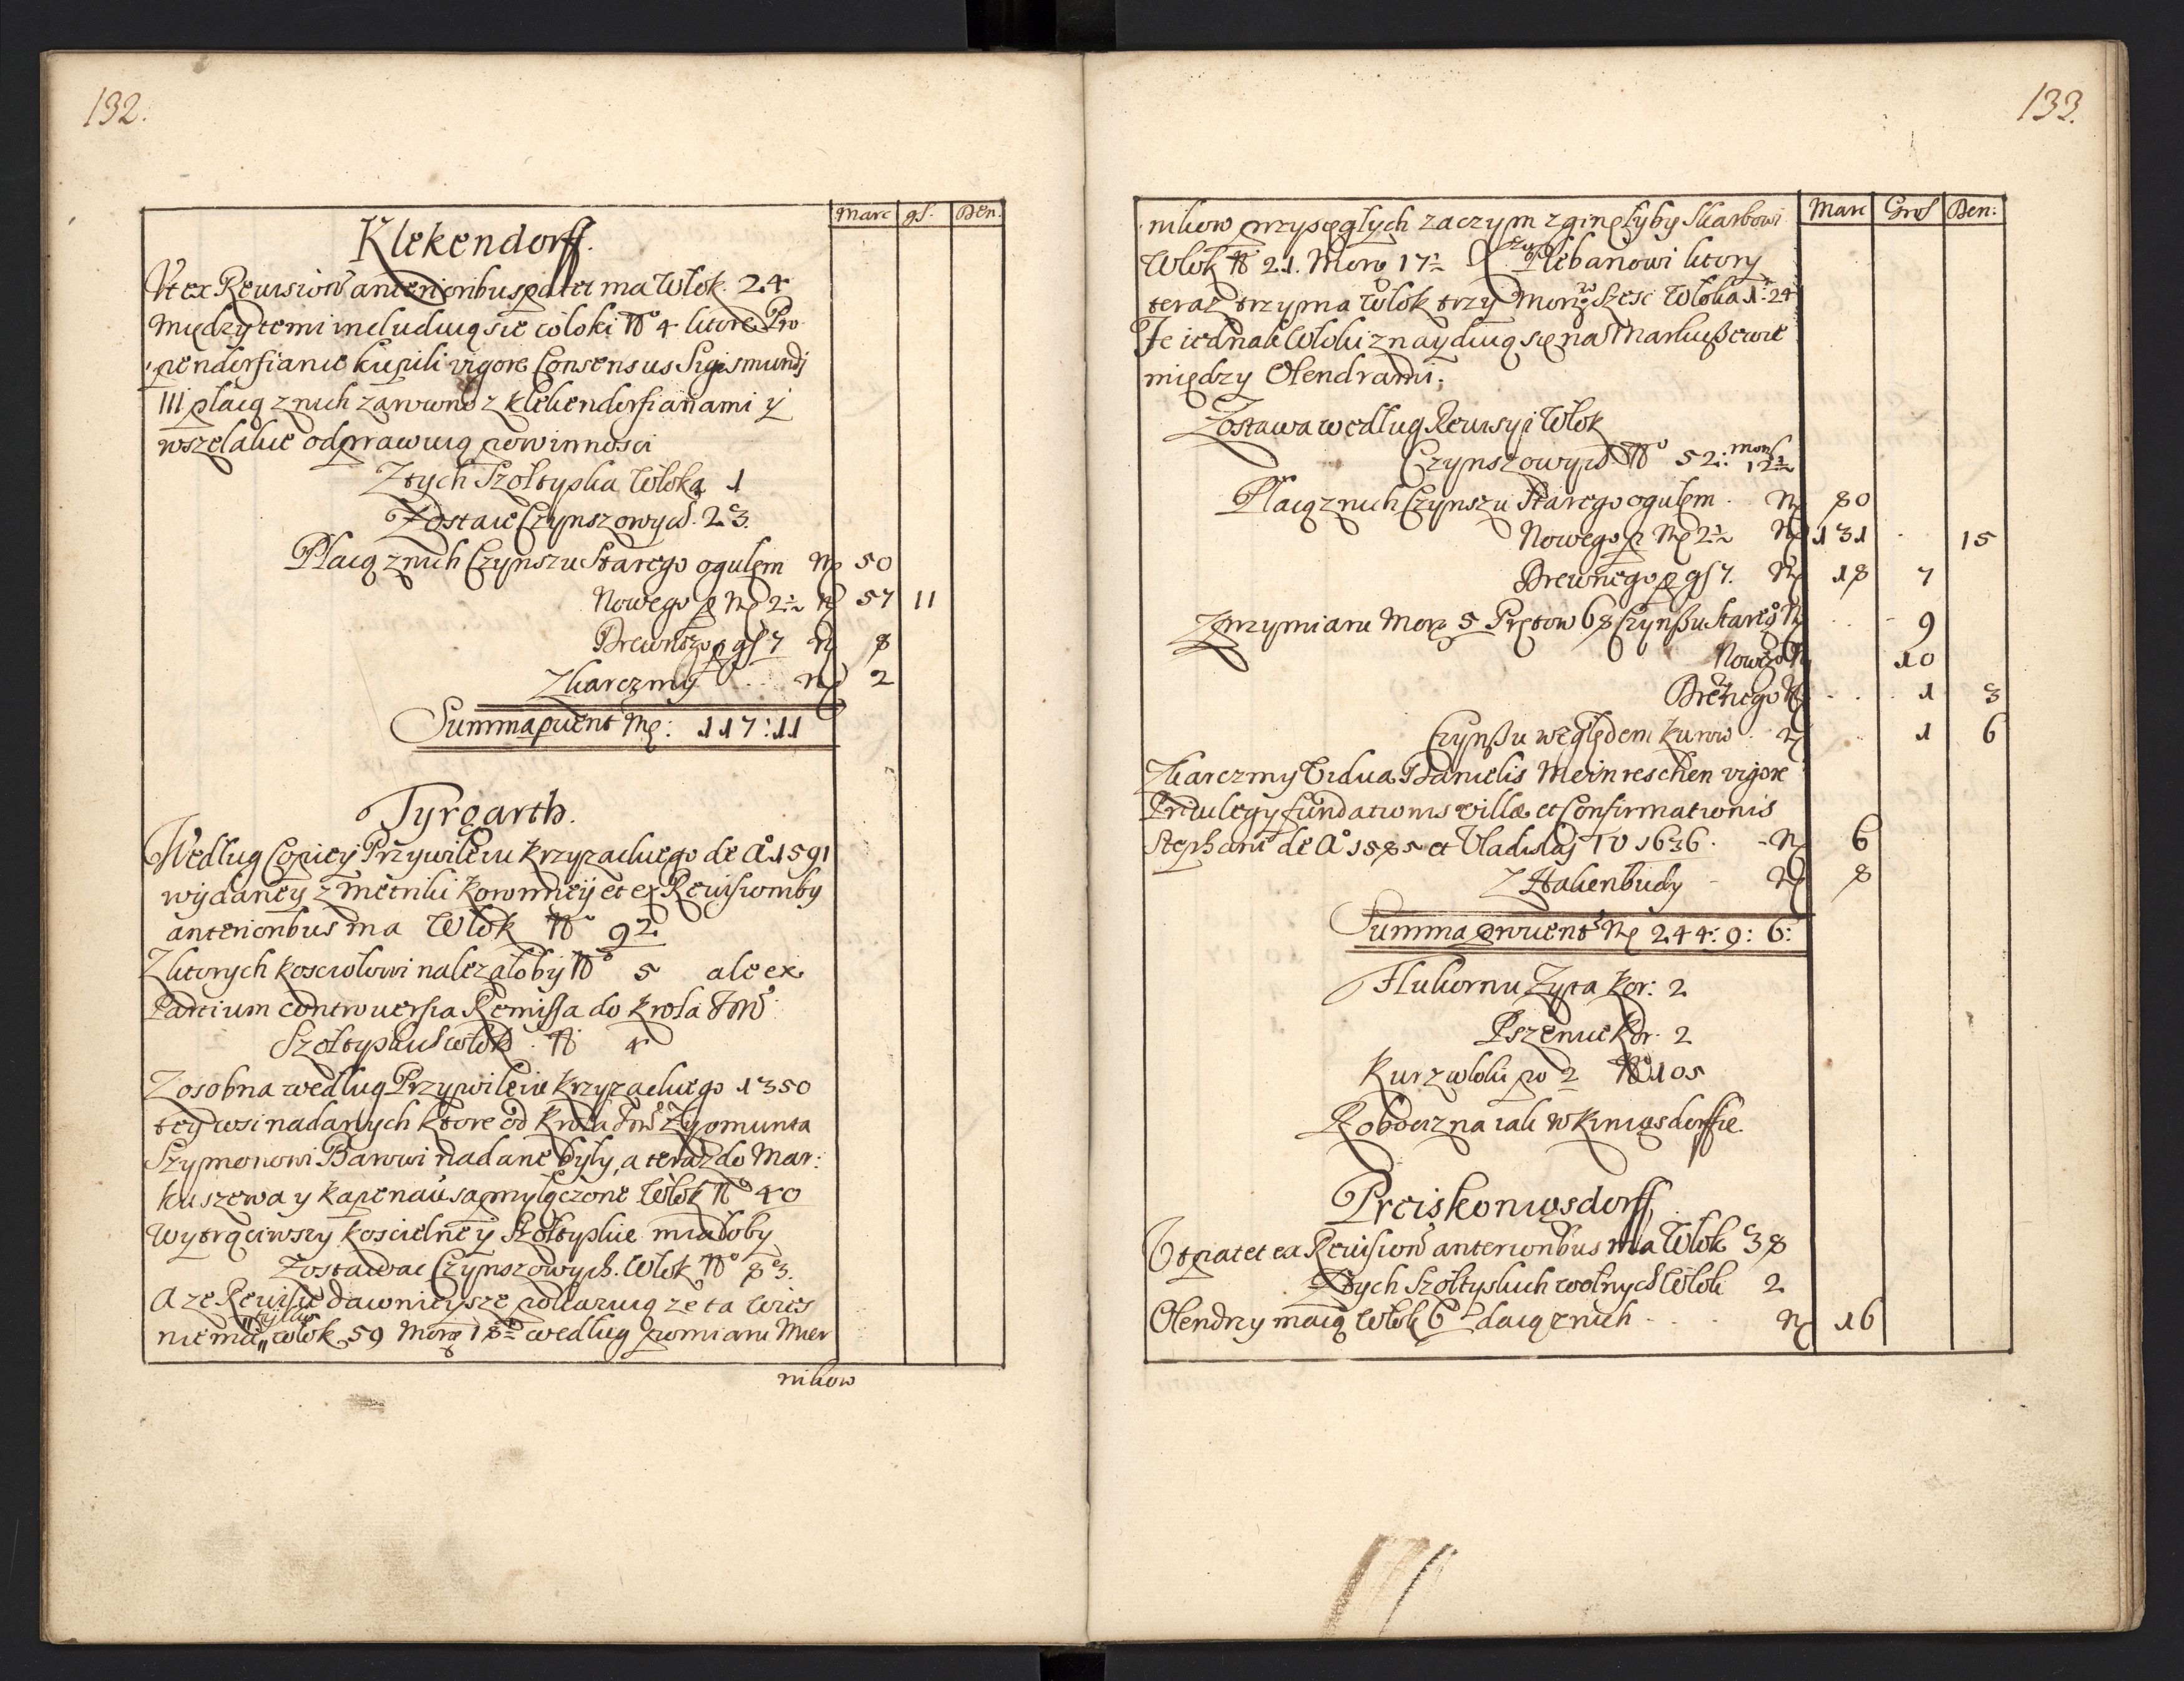 132.
Marc gſ. Den.
Klekendorff.
Vt ex Rewision anterioribus patet ma Wlok. 24
między temi includuią sie wloki No 4 ktore Pro-
pendorfianie kupili vigore Consensus Sigismundi
III płacą z nich zarowno z Klekendorfianami y
wszelakie odprawuią powinnosci
Z tych Szołtyska Wloka 1
Zostaie Czynszowych. 23.
Płacą z nich Czynszu Starego ogułem 50
Nowego 2½ 57 11
Drewnego gſ 7 8
Z karczmy 2
Summa puent 117:11
Tyrgarth.
Według Copiey Przywileiu krzyzackiego de Ao 1591
wydaney z metriki koronney et ex Revisionib9
anterioribus ma Wlok No 92
Z ktorych kosciołowi nalezałoby No 5 ale ex
Partium controversia Remissa do krola Jmsci
Szołtyskich wlok. No 4
Z osobna według Przywileiu krzyzackiego 1350
tey wsi nadanych ktore od krola Jmsci Zygmunta
Szymonowi Barowi nadane były, a teraz do Mar:
kuszewa y kapenau są przyłączone Wlok No 40
Wytrąciwszy koscielne y Szołtyskie miałoby
Zostawac Czynszowych. Wlok No 83.
A ze Rewisie dawnieysze pokazuią ze ta wies
tylko
nie ma wlok 59 Morg 18 według pomiaru Mier
nikow
133.
Marc Groſ Den:
nikow przysięgłych zaczym zginęłyby Skarbowi
Wlok No 21. Morg 17½ Plebanowi ktory
teraz trzyma Wlok trzy Morg Szesc Wloka 1. 24
Te iednak Wloki znayduią się na Markuszewie
między Olendrami.
Zostawa według Rewisyi Wlok
Czynszowych No 52: morg 12½
Płacą z nich Czynszu Starego ogułem. 80
Nowego 2½ 131 15
Drewnego gſ 7. 18 7
Z przymiaru Morg 5 Prętow 68 Czynszu Starego 9
Nowego 10
Drewnego 1 3
Czynszu względem kurow 1 6
Z karczmy Vidua Danielis Meinreschen vigore
Privilegy fundationis villae et Confirmationis
Stephani de Ao 1585 et Vladislaj IV 1636. 6
Z Hakenbudy 8
Summa prouent 244: 9: 6:
Hukornu Zyta kor: 2
Pszenice kor. 2
kur z wloki po 2 No 105
Robocizna iak w Kiniksdorffie
Preiskonigsdorff.
Vt patet ex Revision anterioribus ma Wlok 38
Z tych Szołtyskich wolnych Wlok 2
Olendrzy maią Wlok 6 daią z nich 16